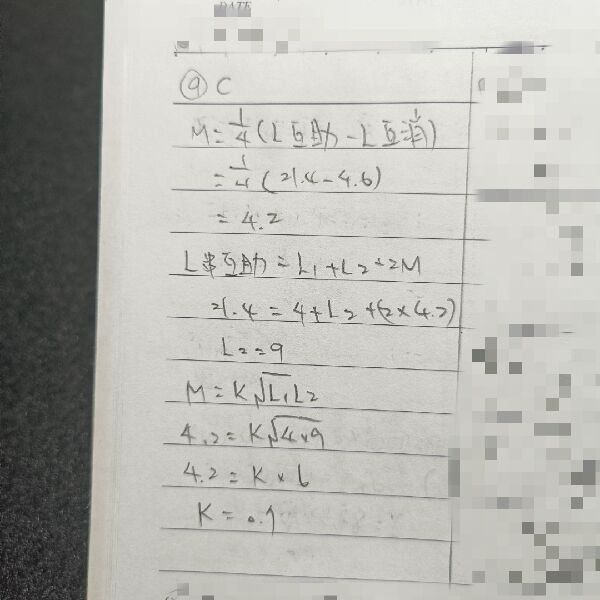 DATE
⑨ C
M=1/4(L互助-L互消)
=1/4(21.4-4.6)
=4.2
L串互助=L₁+L₂+2M
21.4=4+L₂+(2×4.2)
L₂=9
M=K√L₁L₂
4.2=K√4×9
4.2=K×6
K=0.7